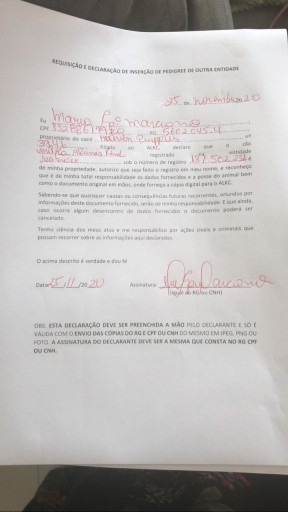 REQUISIÇÃO E DECLARAÇÃO DE INSERÇÃO DE PEDIGREE DE OUTRA ENTIDADE
25 de novembro 20 20
Eu Maria Ap. Marciano
CPF RG
proprietário do canil nº
filiado ao ALKC, declaro que o cão
registrado entidade
sob o número de registro
de minha propriedade, autorizo que seja feito o registro em meu nome, e reconheço
que é de minha total responsabilidade os dados fornecidos e a posse do animal bem
como o documento original em mãos, onde forneço a cópia digital para o ALKC.
Sabendo-se que quaisquer causas ou consequências futuras recorrentes, oriundos por
informações deste documento fornecido, serão de minha responsabilidade. E que ainda,
caso ocorra algum desencontro de dados fornecidos o documento poderá ser
cancelado.
Tenho ciência dos meus atos e me responsabilizo por ações cíveis e criminais que
possam recorrer sobre as informações aqui declarados.
O acima descrito é verdade e dou fé
Data: 25/11/20 20 Assinatura
(Igual do RG ou CNH)
OBS: ESTA DECLARAÇÃO DEVE SER PREENCHIDA A MÃO PELO DECLARANTE E SÓ É
VÁLIDA COM O ENVIO DAS CÓPIAS DO RG E CPF OU CNH DO MESMO EM JPEG, PNG OU
FOTO. A ASSINATURA DO DECLARANTE DEVE SER A MESMA QUE CONSTA NO RG CPF
OU CNH.